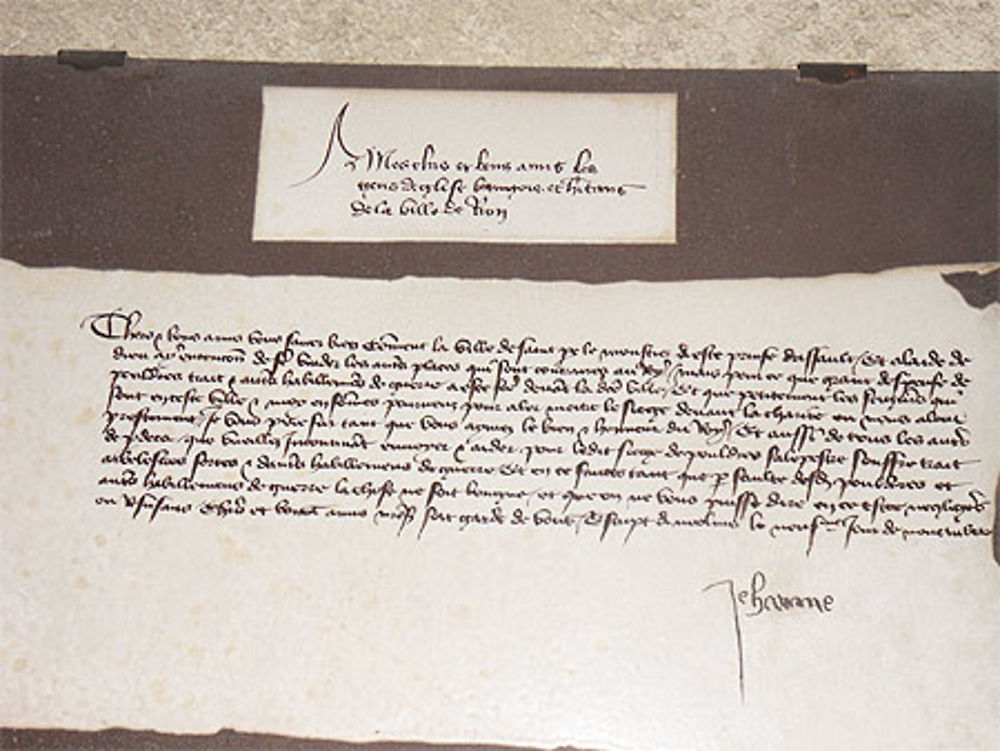 A Mes chers et bons amis les
gens deglise bourgois et hitans
de la ville de Rion
Chers et bons amis vous savez bien coment la ville de saint pe le moustier a este prinse dassault Et a laide de
dieu ay entencon de fe vuider les aues places qui sont contraires au Roy mais pour ce que grant despense de
pouldres trait et aues habillemens de guerre a este fce devant la de ville Et que petitement les seigneurs qui
sont en ceste ville et moy en sommes pourveuz pour aler mectre le siege devant la charite ou nous alons
prestement Je vous prie sur tant que vous aymez le bien et honneur du Roy Et aussi de tous les aues
de pdeca que vueillez incontinent envoyer et aider pour ledit siege de pouldres salepestre souffre trait
arbelestres fortes et daues habillemens de guerre Et en ce faictes tant que p faulte desd pouldres et
aues habillemens de guerre la chose ne soit longue et que on ne vous puisse dire en ce estre negligens
ou refusans Chers et bons amis nre sire soit garde de vous Escript a molins le neufme jour de novembre
Jehanne